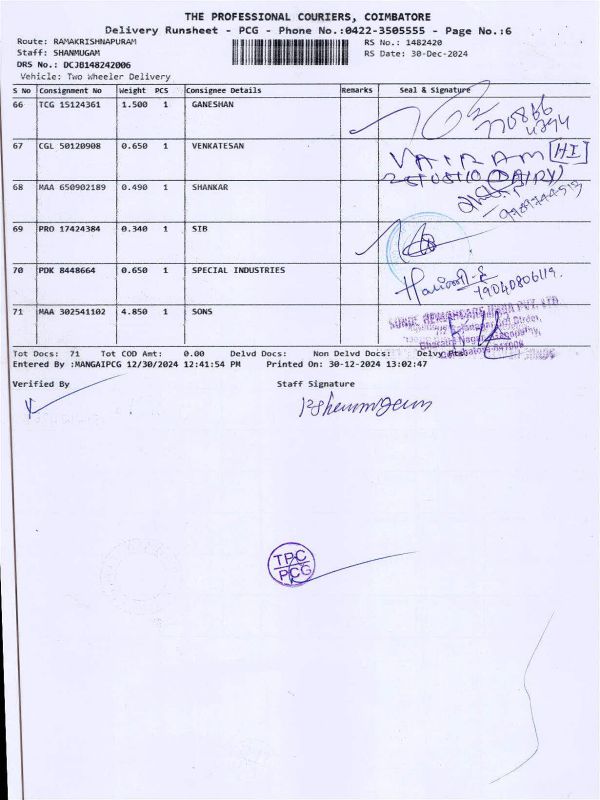 THE PROFESSIONAL COURIERS, COIMBATORE
Delivery Runsheet - PCG - Phone No.:0422-3505555 - Page No.:6
Route: RAMAKRISHNAPURAM
RS No.: 1482420
Staff: SHANMUGAM
RS Date: 30-Dec-2024
DRS No.: DCJB148242006
Vehicle: Two Wheeler Delivery
S No Consignment No Weight PCS Consignee Details Remarks Seal & Signature
66 TCG 15124361 1.500 1 GANESHAN
67 CGL 50120908 0.650 1 VENKATESAN
VAIRAM [HI]
68 MAA 650902189 0.490 1 SHANKAR
69 PRO 17424384 0.340 1 SIB
70 PDK 8448664 0.650 1 SPECIAL INDUSTRIES
71 MAA 302541102 4.850 1 SONS
Tot Docs: 71 Tot COD Amt: 0.00 Delvd Docs: Non Delvd Docs: Delvy Pts:
Entered By :MANGAIPCG 12/30/2024 12:41:54 PM Printed On: 30-12-2024 13:02:47
Verified By
Staff Signature
TPC
PCG